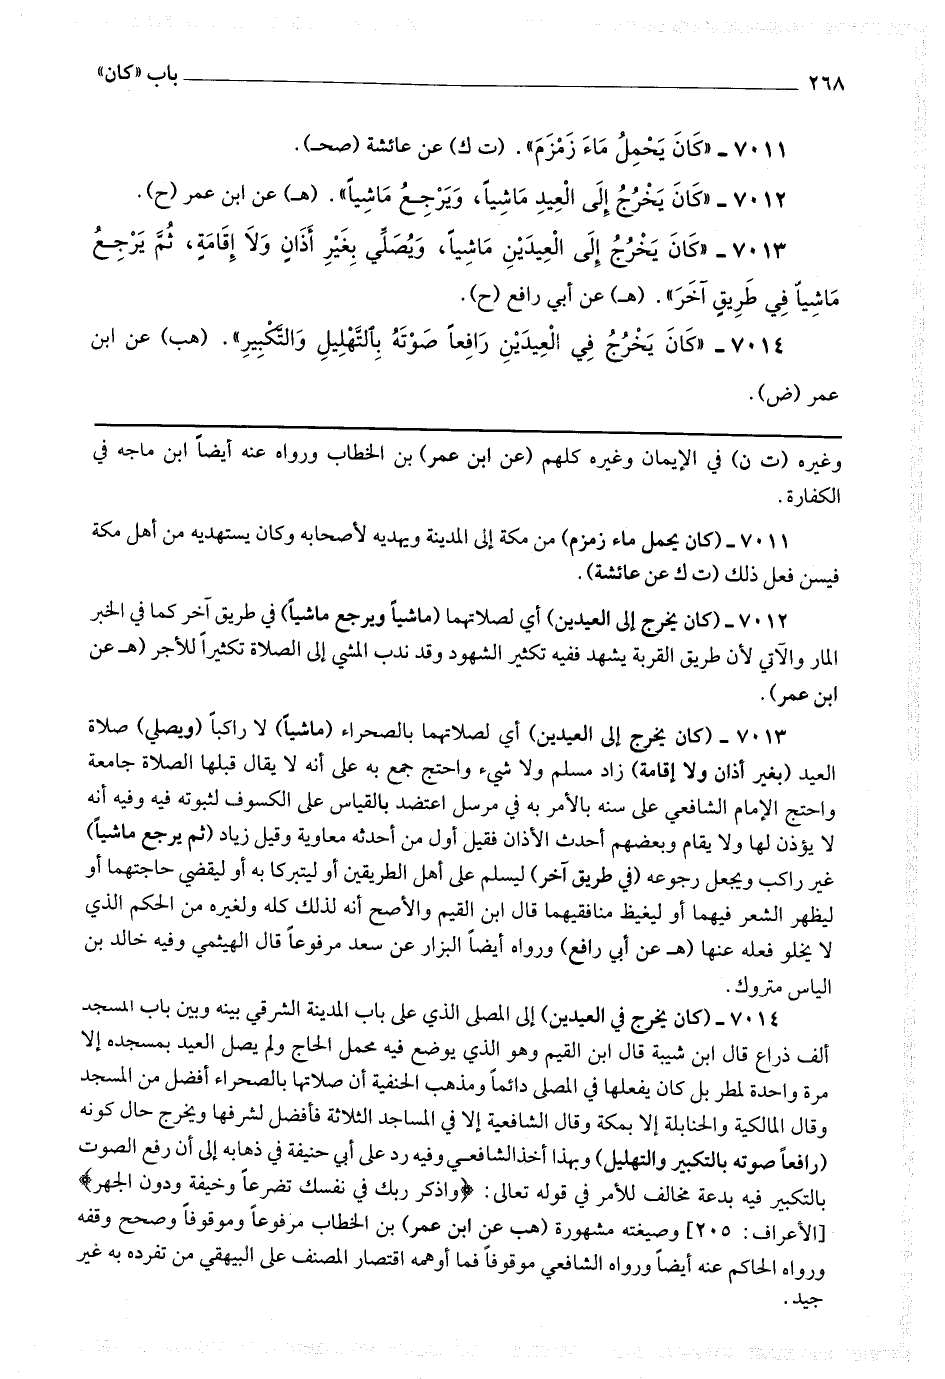 ٢٦٨ باب «كان»
٧٠١١ ـ «كَانَ يَحْمِلُ مَاءَ زَمْزَمَ». (ت ك) عن عائشة (صحـ).
٧٠١٢ ـ «كَانَ يَخْرُجُ إِلَى الْعِيدِ مَاشِياً، وَيَرْجِعُ مَاشِياً». (هـ) عن ابن عمر (ح).
٧٠١٣ ـ «كَانَ يَخْرُجُ إِلَى الْعِيدَيْنِ مَاشِياً، وَيُصَلِّي بِغَيْرِ أَذَانٍ وَلَا إِقَامَةٍ، ثُمَّ يَرْجِعُ
مَاشِياً فِي طَرِيقٍ آخَرَ». (هـ) عن أبي رافع (ح).
٧٠١٤ ـ «كَانَ يَخْرُجُ فِي الْعِيدَيْنِ رَافِعاً صَوْتَهُ بِٱلتَّهْلِيلِ وَالتَّكْبِيرِ». (هب) عن ابن
عمر (ض).
وغيره (ت ن) في الإيمان وغيره كلهم (عن ابن عمر) بن الخطاب ورواه عنه أيضاً ابن ماجه في
الكفارة.
٧٠١١ ـ (كان يحمل ماء زمزم) من مكة إلى المدينة ويهديه لأصحابه وكان يستهديه من أهل مكة
فيسن فعل ذلك (ت ك عن عائشة).
٧٠١٢ ـ (كان يخرج إلى العيدين) أي لصلاتهما (ماشياً ويرجع ماشياً) في طريق آخر كما في الخبر
المار والآتي لأن طريق القربة يشهد ففيه تكثير الشهود وقد ندب المشي إلى الصلاة تكثيراً للأجر (هـ عن
ابن عمر).
٧٠١٣ ـ (كان يخرج إلى العيدين) أي لصلاتهما بالصحراء (ماشياً) لا راكباً (ويصلي) صلاة
العيد (بغير أذان ولا إقامة) زاد مسلم ولا شيء واحتج جمع به على أنه لا يقال قبلها الصلاة جامعة
واحتج الإمام الشافعي على سنه بالأمر به في مرسل اعتضد بالقياس على الكسوف لثبوته فيه وفيه أنه
لا يؤذن لها ولا يقام وبعضهم أحدث الأذان فقيل أول من أحدثه معاوية وقيل زياد (ثم يرجع ماشياً)
غير راكب ويجعل رجوعه (في طريق آخر) ليسلم على أهل الطريقين أو ليتبركا به أو ليقضي حاجتهما أو
ليظهر الشعر فيهما أو ليغيظ منافقيهما قال ابن القيم والأصح أنه لذلك كله ولغيره من الحكم الذي
لا يخلو فعله عنها (هـ عن أبي رافع) ورواه أيضاً البزار عن سعد مرفوعاً قال الهيثمي وفيه خالد بن
الياس متروك.
٧٠١٤ ـ (كان يخرج في العيدين) إلى المصلى الذي على باب المدينة الشرقي بينه وبين باب المسجد
ألف ذراع قال ابن شيبة قال ابن القيم وهو الذي يوضع فيه محمل الحاج ولم يصل العيد بمسجده إلا
مرة واحدة لمطر بل كان يفعلها في المصلى دائماً ومذهب الحنفية أن صلاتها بالصحراء أفضل من المسجد
وقال المالكية والحنابلة إلا بمكة وقال الشافعية إلا في المساجد الثلاثة فأفضل لشرفها ويخرج حال كونه
(رافعاً صوته بالتكبير والتهليل) وبهذا أخذ الشافعي وفيه رد على أبي حنيفة في ذهابه إلى أن رفع الصوت
بالتكبير فيه بدعة مخالف للأمر في قوله تعالى: ﴿واذكر ربك في نفسك تضرعاً وخيفة ودون الجهر﴾
[الأعراف: ٢٠٥] وصيغته مشهورة (هب عن ابن عمر) بن الخطاب مرفوعاً وموقوفاً وصحح وقفه
ورواه الحاكم عنه أيضاً ورواه الشافعي موقوفاً فما أوهمه اقتصار المصنف على البيهقي من تفرده به غير
جيد.